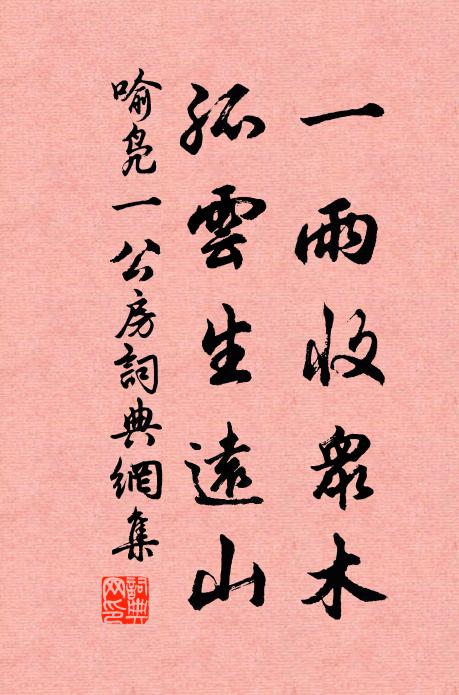 一雨收衆木
孤雲生遠山
喻凫一公房詞典網集
詞典
网印